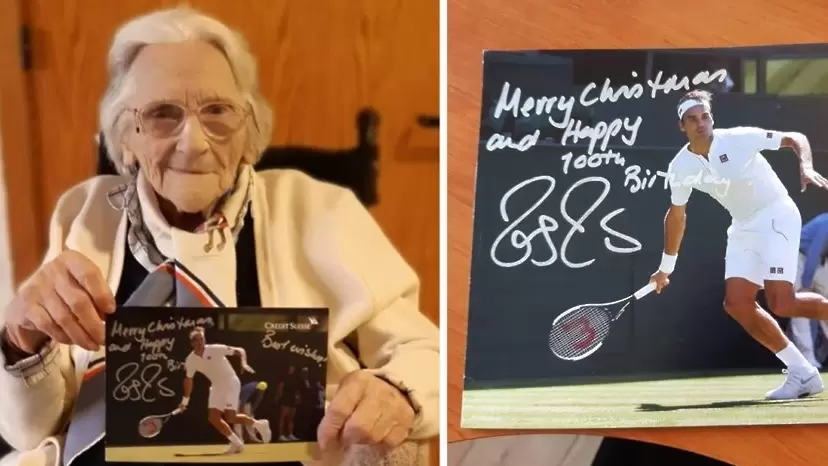 Merry Christmas
and Happy
100th
Birthday
CREDIT SUISSE
Best wishes
Merry Christmas
and Happy
100th
Birthday